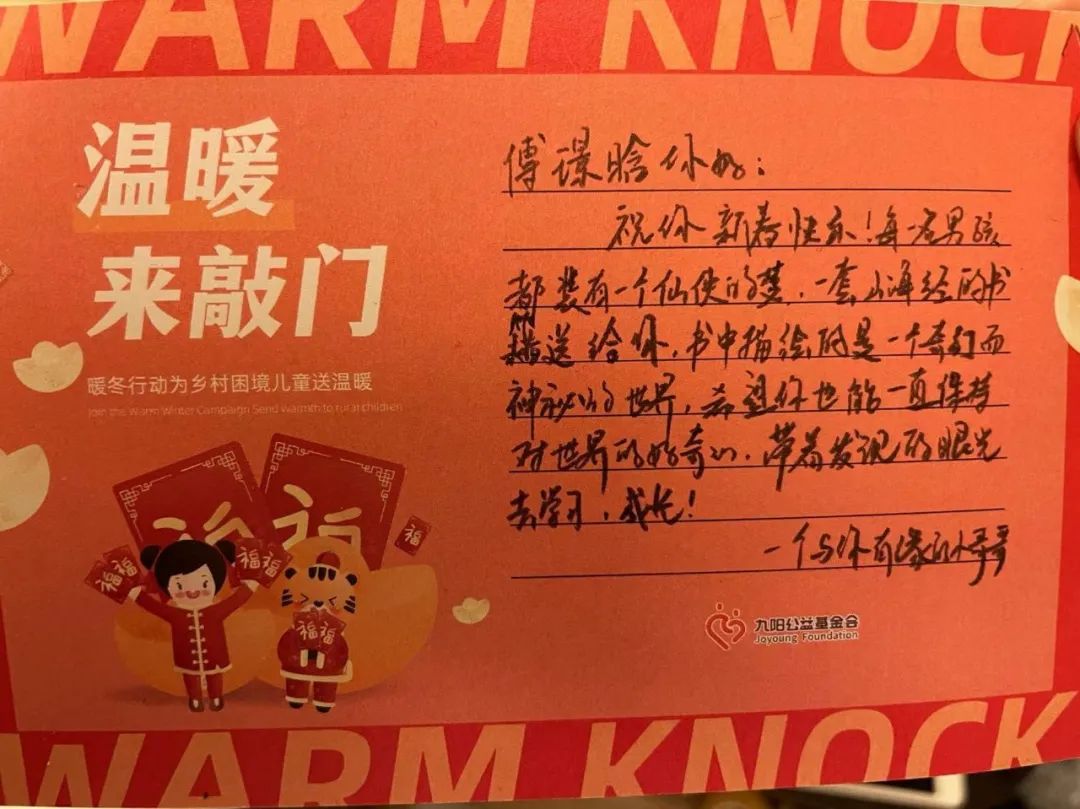 WARM KNOCK
温暖
来敲门
暖冬行动为乡村困境儿童送温暖
Join the Warm Winter Campaign Send warmth to rural children
福福
福
福福
福福
福福
傅璟晗你好：
祝你新春快乐！每一名男孩
都装有一个仙侠的梦，一套山海经的书
籍送给你，书中描绘的是一个奇幻而
神秘的世界，希望你也能一直保持
对世界的好奇心，带着发现的眼光
去学习，成长！
一个与你有缘的小哥哥
九阳公益基金会
Joyoung Foundation
WARM KNOCK